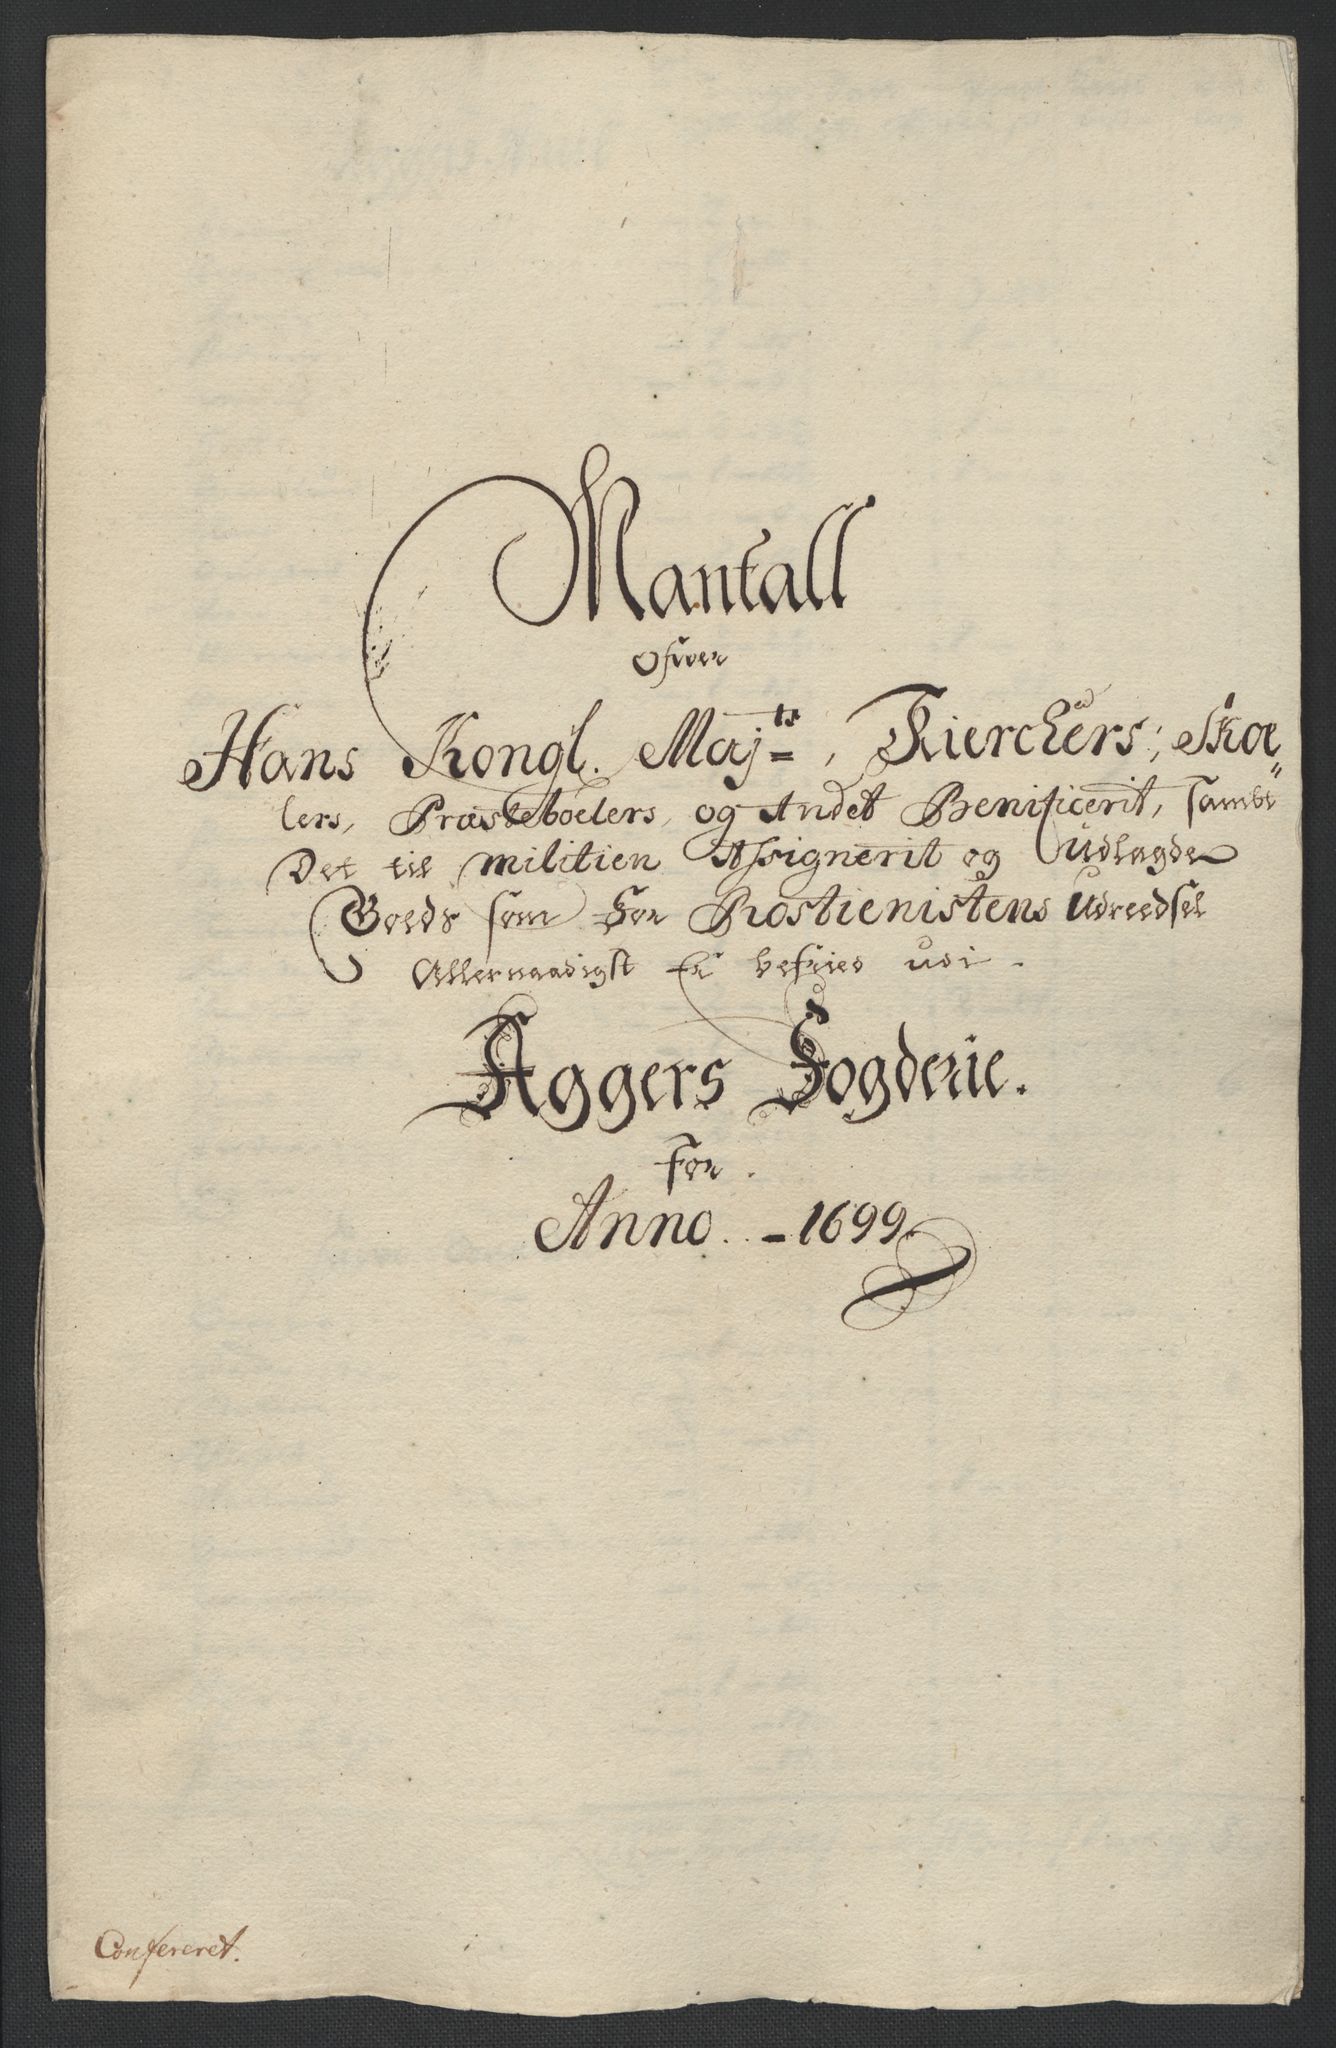 Mantall
ofwer
Hans Kongl. Maj.ts, Kierchers; Skoe„
lers, Præsteboelers, og Andet Benificerit, sambt
Det til militien Assignerit og Udlagde
Goeds som For Rostienistens Udreedsel
Allernaadigst Er befried udi.
Aggers Fogderie.
for.
Anno. - 1699
Confereret.